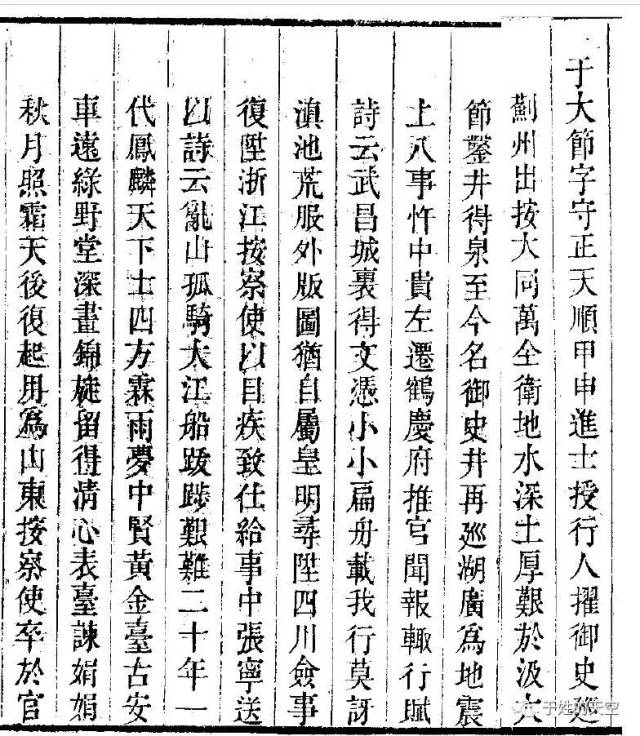 于大節字守正天順甲申進士授行人擢御史廵
薊州出按大同萬全衛地水深土厚艱於汲大
節鑿井得泉至今名御史井再廵湖廣爲地震
上八事忤中貴左遷鶴慶府推官聞報輙行賦
詩云武昌城裏得文憑小小扁舟載我行莫訝
滇池荒服外版圖猶自屬皇明尋陞四川僉事
復陞浙江按察使以目疾致仕給事中張寧送
以詩云亂山孤騎大江船跋踄艱難二十年一
代鳳麟天下士四方霖雨夢中賢黃金臺古安
車遠綠野堂深晝錦旋留得清心表臺諫娟娟
秋月照霜天後復起用爲山東按察使卒於官
于姓的天空